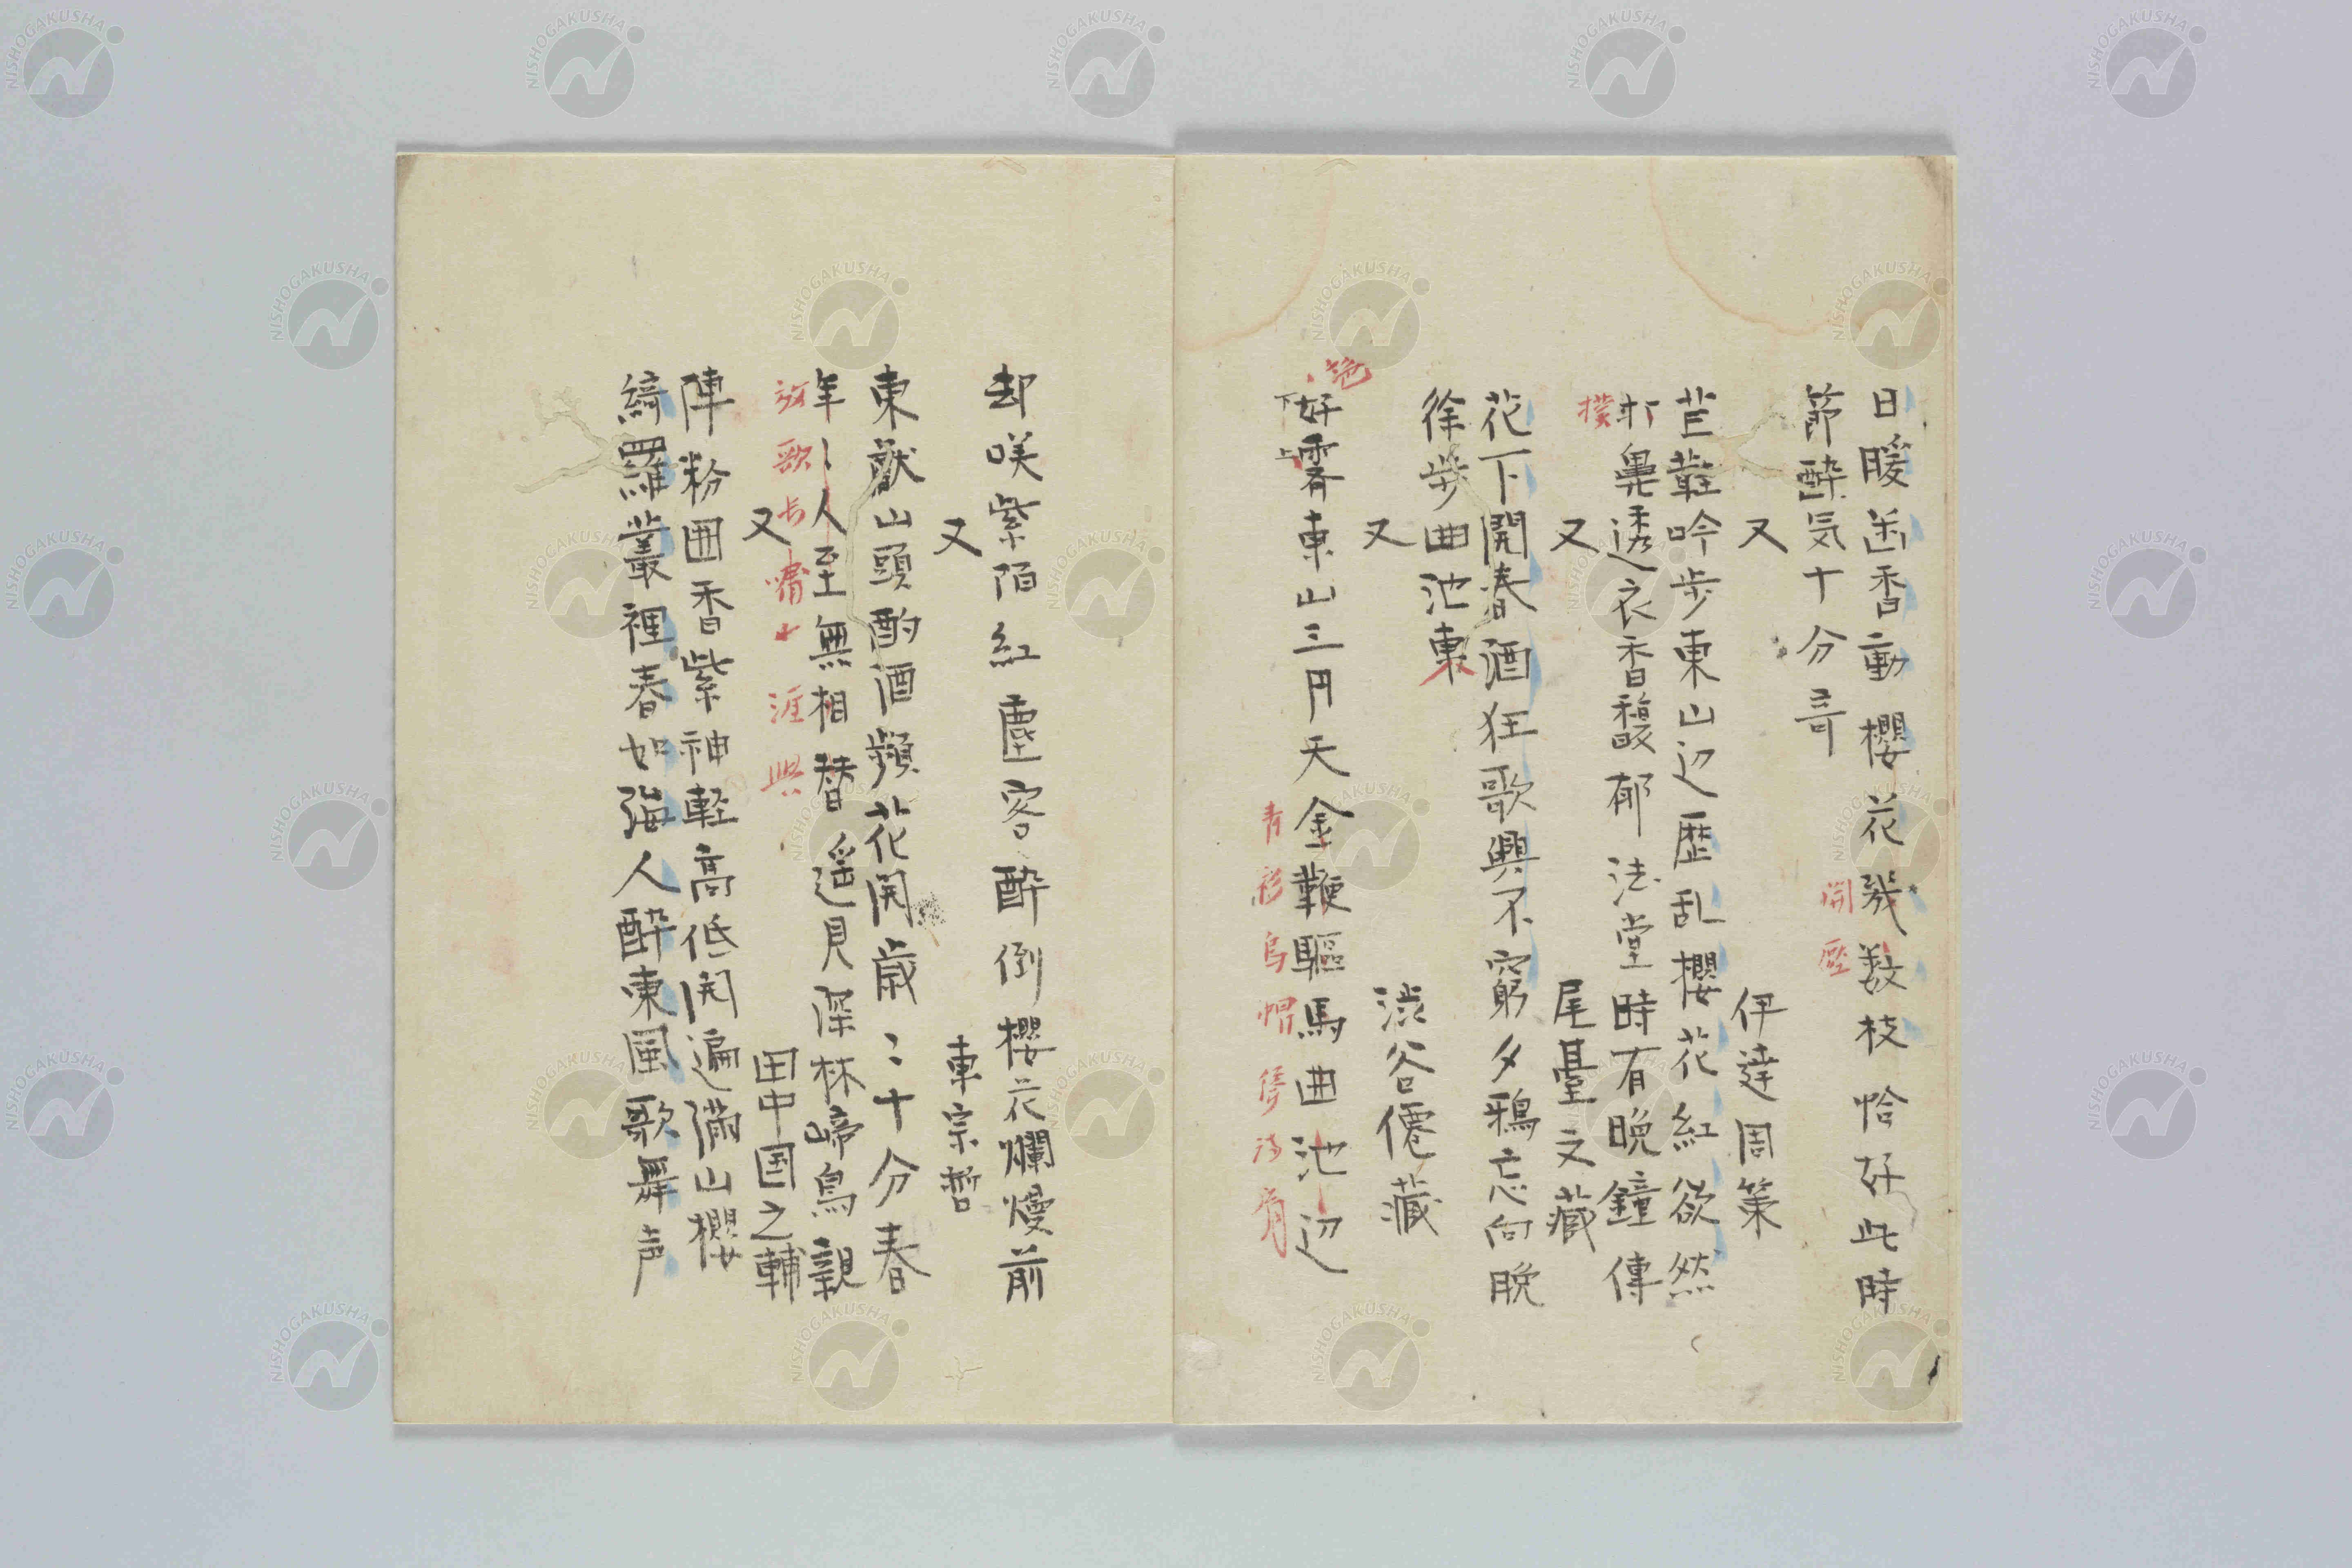 日暖函香動櫻花発数枝恰好此時
開壓
節酔気十分奇
又 伊達周策
芒鞋吟歩東山辺歴乱櫻花紅欲然
扑鼻透衣香馥郁法堂時有晩鐘傳
撲
又 尾臺文蔵
花下開春酒狂歌興不窮夕鴉忘向晩
徐歩曲池東
又 渋谷僊蔵
絶
好霽東山三月天金鞭驅馬曲池辺
下
上
青衫烏帽
却咲紫陌紅塵客酔倒櫻花爛熳前
又 東宗哲
東叡山頭酌酒頻花開歳〻十分春
年〻人至無相替遥見深林啼鳥親
放歌長嘯 興
又 田中国之輔
陣粉囲香紫神軽高低開遍満山櫻
綺羅叢裡春如海人酔東風歌舞声
NISHOGAKUSHA